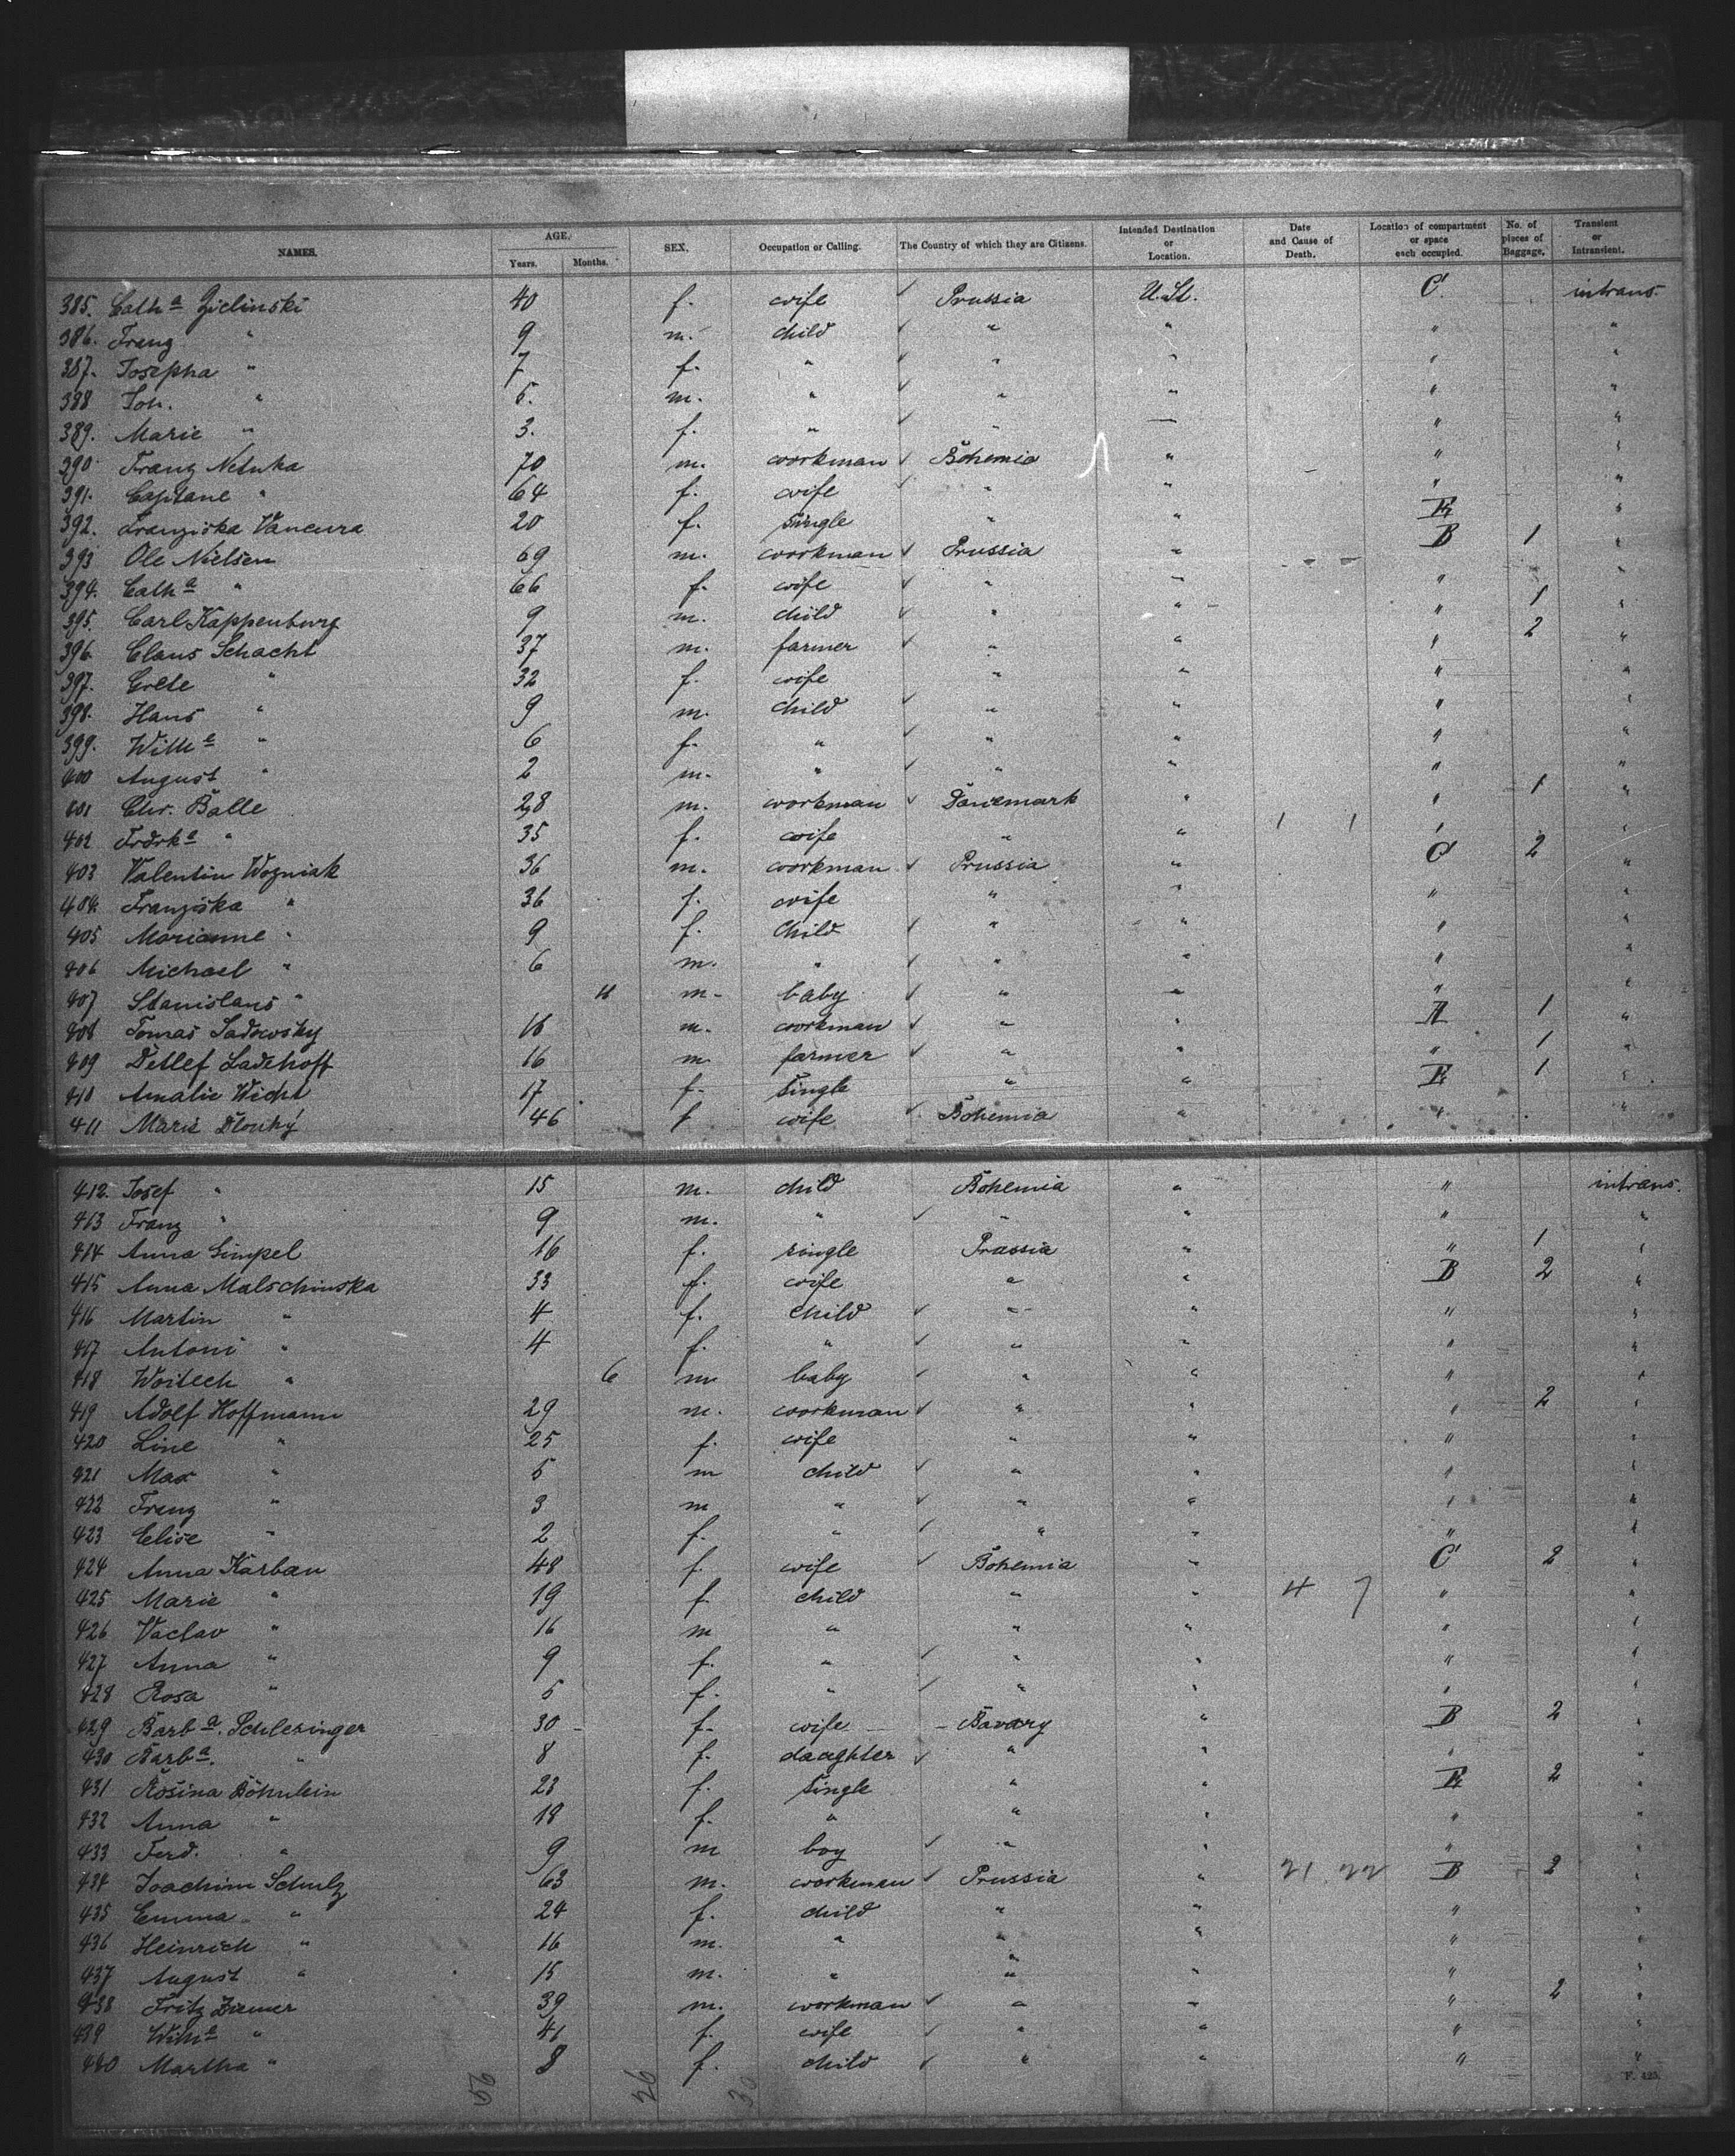 NAMES. AGE. Years. Months. SEX. Occupation or Calling. The Country of which they are Citizens. Intended Destination or Location. Date and Cause of Death. Location of compartment or space each occupied. No. of pieces of Baggage. Transient or Intransient.
385. Cath a Zielinski 40 f. wife Prussia U. St. C intrans.
386. Franz " 9 m. child " " " "
387. Josepha " 7 f. " " " " "
388 Joh. " 5. m. " " " " "
389. Marie " 3. f. " " — " "
390. Franz Netuka 70 m. workman Bohemia " " "
391. Caplane " 64 f. wife " " " "
392. Franziska Vancura 20 f. single " " E "
393 Ole Nielsen 69 m. workman Prussia " B 1 "
394. Cath a " 66 f. wife " " " "
395. Carl Kappenburg 9 m. child " " " 1 "
396. Claus Schacht 37 m. farmer " " " 2 "
397. Grete " 32 f. wife " " " "
398. Hans " 9 m. child " " " "
399. Wilh e " 6 f. " " " " "
400 August " 2 m. " " " " "
401 Chr. Balle 28 m. workman Dänemark " " 1 "
402 Frdrk a " 35 f. wife " " " "
403 Valentin Wozniak 36 m. workman Prussia " C 2 "
404. Franziska " 36 f. wife " " " "
405 Marianne " 9 f. Child " " " "
406 Michael " 6 m. " " " " "
407 Stanislaus " 11 m. baby " " " "
408 Tomas Sadowsky 16 m. workman " " A 1 "
409 Detlef Ladehoff 16 m. farmer " " " 1 "
410 Amalie Wicht 17 f. single " " E 1 "
411 Marie Dlouhý 46 f wife Bohemia " " "
412. Josef " 15 m. child Bohemia " " intrans.
413 Franz " 9 m. " " " " "
414 Anna Gimpel 16 f. single Prussia " " 1 "
415 Anna Malschinska 33 f. wife " " B 2 "
416 Martin " 4 f. child " " " "
417 Antoni " 4 f. " " " " "
418 Woitech " 6 m baby " " " "
419 Adolf Hoffmann 29 m. workman " " " 2 "
420 Line " 25 f. wife " " " "
421 Max " 5 m child " " " "
422 Franz " 3 m " " " " "
423 Elise " 2 f. " " " " "
424 Anna Karban 48 f. wife Bohemia " C 2 "
425 Marie " 19 f. child " " 4 7 " "
426 Vaclav " 16 m " " " " "
427 Anna " 9 f. " " " " "
428 Rosa " 5 f. " " " " "
429 Barb a. Schlezinger 30 f. wife Bavary " B 2 "
430 Barb a. " 8 f. daughter " " " "
431 Rosina Böhnlein 23 f. single " " E 2 "
432 Anna " 18 f. " " " " "
433 Ferd. " 9 m boy " " " "
434 Joachim Schulz 63 m. workman Prussia " 21 22 B 2 "
435 Emma " 24 f. child " " " "
436 Heinrich " 16 m. " " " " "
437 August " 15 m. " " " " "
438 Fritz Ziemer 39 m. workman " " " 2 "
439 Wilh e " 41 f. wife " " " "
440 Martha " 8 f. child " " " "
F. 425.
56 26 30